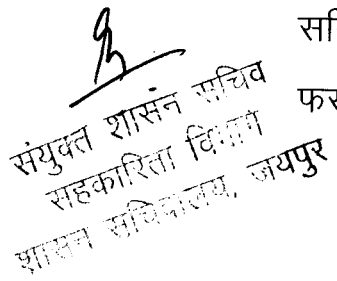 सं‍युक्त शासन सचिव
सहकारिता विभाग
शासन सचिवालय, जयपुर